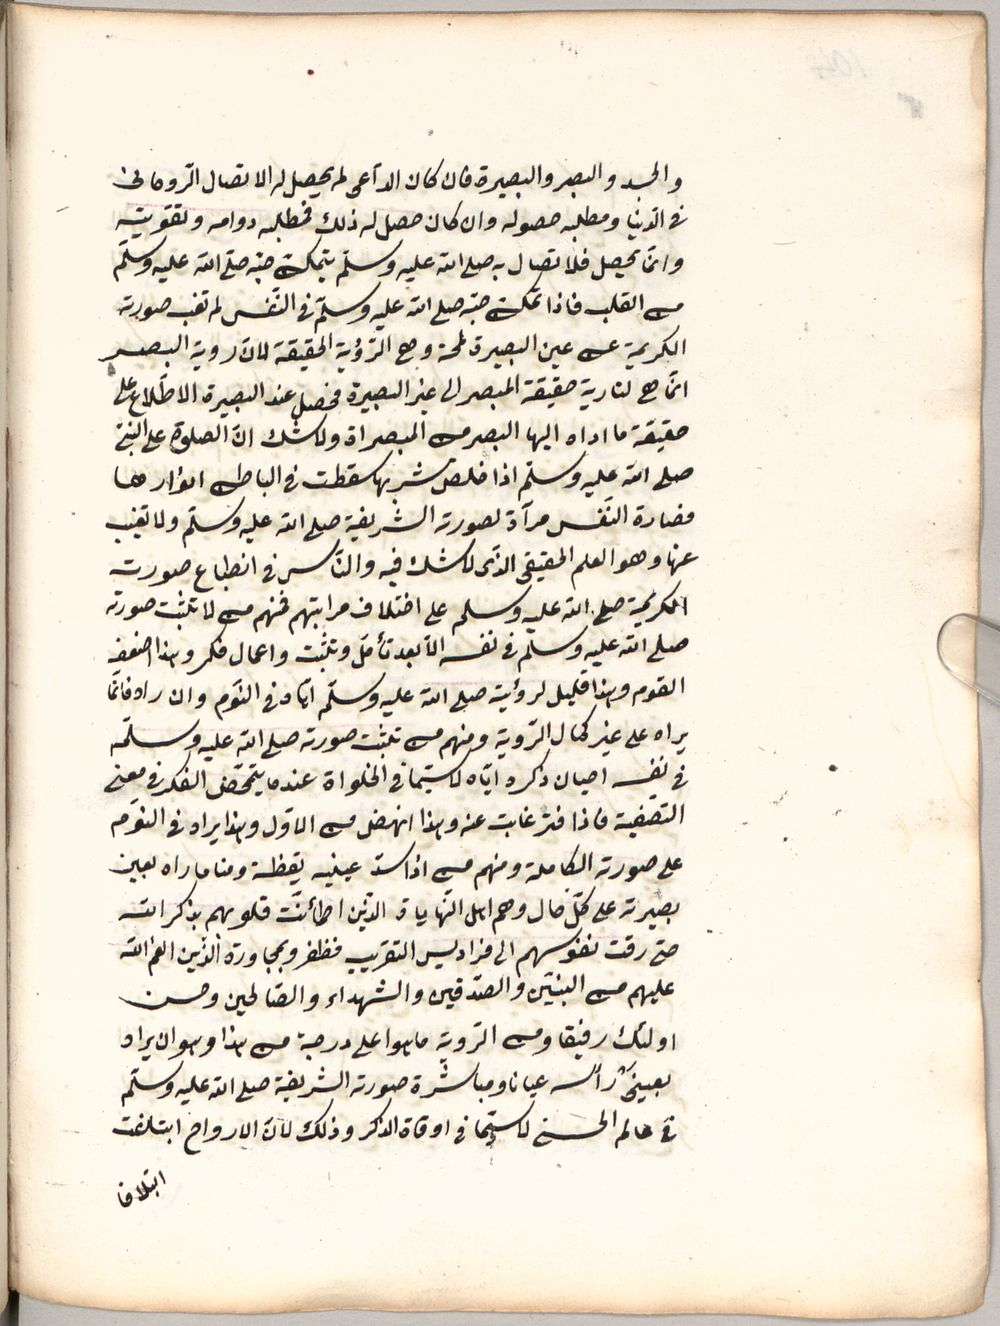 والجسد والبصر والبصيرة فان كان الداعى لم يحصل له الاتصال الروحانى
فى الدنيا ومطلبه حصوله وان كان حصل له ذلك فمطلبه دوامه وتقويته
وانما يحصل فلاتصال به صلى الله عليه وسلم بتمكن حبه صلى الله عليه وسلم
من القلب فاذا تمكن حبه صلى الله عليه وسلم فى النفس لم تغب صورته
الكريمة عن عين البصيرة لمحة وهى الرؤية الحقيقة لان روية البصر
انما هى لتادية حقيقة المبصر الى عين البصيرة فحصل عند البصيرة الاطلاع على
حقيقة ما اداه اليها البصر من المبصراة ولا شك ان الصلوة على النبى
صلى الله عليه وسلم اذا خلص شربها سقطت فى الباطن انوارها
فصارة النفس مرآة لصورته الشريفة صلى الله عليه وسلم ولا تغيب
عنها وهو العلم الحقيقى الذى لا شك فيه والناس فى انطباع صورت
الكريمة صلى الله عليه وسلم على اختلاف مراتبهم فمنهم من لا تثبت صورته
صلى الله عليه وسلم فى نفسه الا بعد تأمل وتثبت واعمال فكر وهذا اضعف
القوم وهذا قليل لرؤيته صلى الله عليه وسلم اياه فى النوم وان راه فانما
يراه على غير كمال الروية ومنهم من تثبت صورته صلى الله عليه وسلم
فى نفسه احيان ذكره اياه لا سيما فى الخلواة عندما يتمحض الفكر فى معنى
التصفية فاذا فتر غابت عنه وهذا انهض من الاول وهذا يراه فى النوم
على صورته الكاملة ومنهم من اذا سد عينيه يقظة ومناما راه بعين
بصيرته على كل حال وهم اهل النهايات الذين اطمأنت قلوبهم بذكر الله
حتى رقت نفوسهم الى فراديس التقريب فظفروا بمجاورة الذين انعم الله
عليهم من النبيين والصدقين والشهداء والصالحين وحسن
اولئك رفيقا ومن الروية ما هوا على درجة من هذا وهو ان يراه
بعينى رأسه عيانا ومباشرة صورته الشريفة صلى الله عليه وسلم
فى عالم الحس لا سيما فى اوقاة الذكر وذلك لان الارواح ايتلفت
ايتلافا